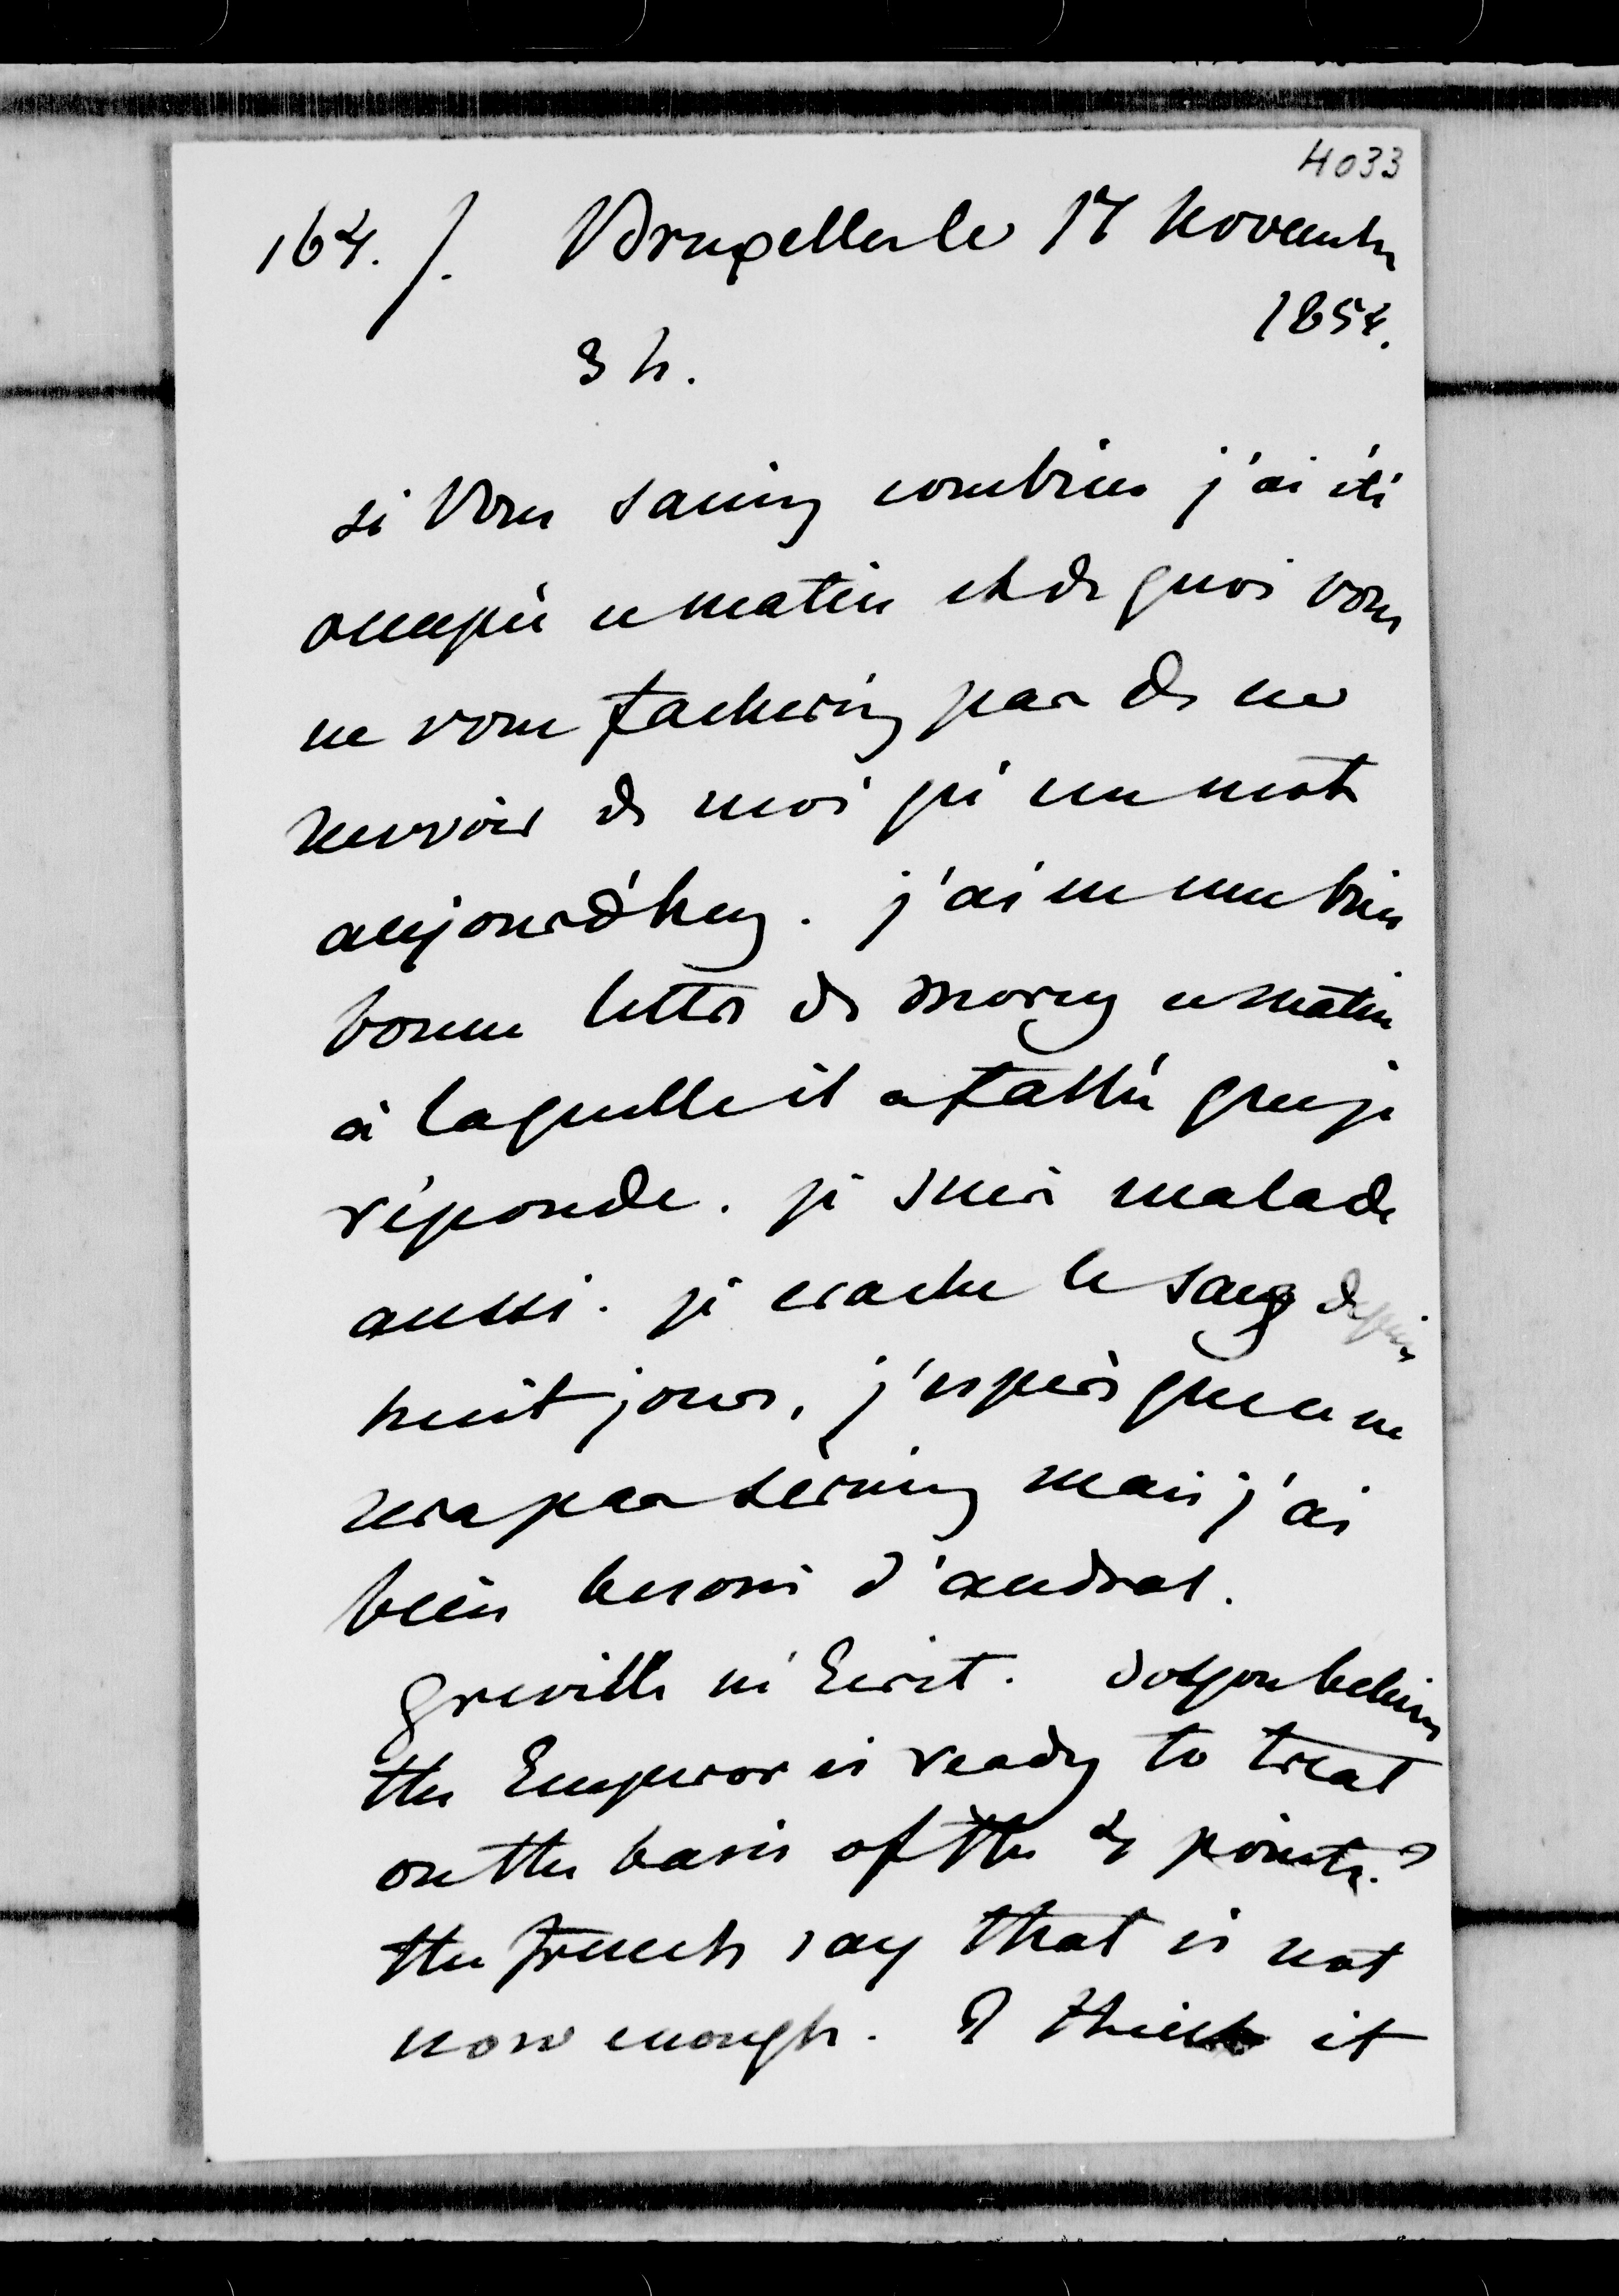 4033
164. /. Bruxelles le 17 novembre
1854.
3 h.
si vous saviez combien j'ai été
occupée ce matin et de quoi vous
ne vous facheriez pas de ne
recevoir de moi qu'un mot
aujourd'huy. j'ai eu une bien
bonne lettre de Morny ce matin
à laquelle il a fallu que je
réponde. je suis malade
aussi. je crache le sang depuis
huit jours, j'espère que ce ne
sera pas sérieux mais j'ai
bien besoin d'andral.
Greville m'écrit. do you believe
the Emperor is ready to treat
on the basis of the 4 points?
the french say that is not
now enough. I think it